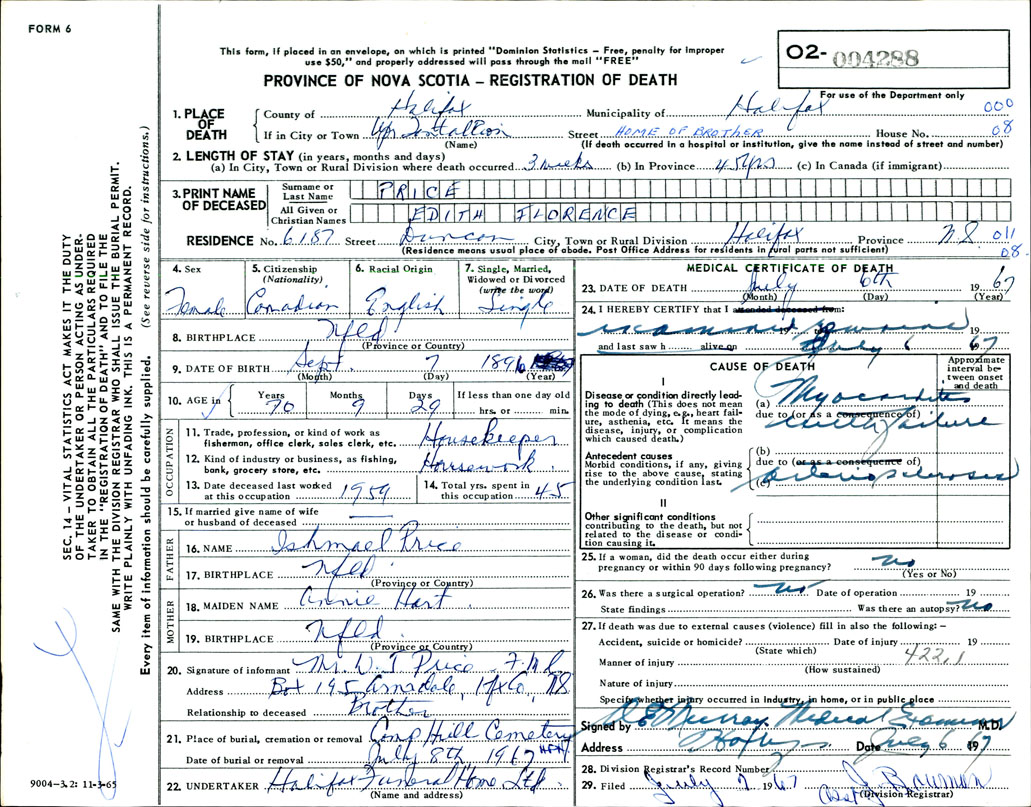 FORM 6
This form, if placed in an envelope, on which is printed "Dominion Statistics – Free, penalty for improper
use $50," and properly addressed will pass through the mail "FREE"
O2- 004288
PROVINCE OF NOVA SCOTIA – REGISTRATION OF DEATH
For use of the Department only
1. PLACE OF DEATH
County of Halifax Municipality of Halifax 000
If in City or Town Upr Tantallion Street HOME OF BROTHER House No. 08
(Name) (If death occurred in a hospital or institution, give the name instead of street and number)
2. LENGTH OF STAY (in years, months and days)
(a) In City, Town or Rural Division where death occurred 3 weeks (b) In Province 45 yrs (c) In Canada (if immigrant)
3. PRINT NAME OF DECEASED
Surname or Last Name PRICE
All Given or Christian Names EDITH FLORENCE
RESIDENCE No. 6187 Street Duncan City, Town or Rural Division Halifax Province NS 011
(Residence means usual place of abode. Post Office Address for residents in rural parts not sufficient) 08
4. Sex Female
5. Citizenship (Nationality) Canadian
6. Racial Origin English
7. Single, Married, Widowed or Divorced (write the word) Single
8. BIRTHPLACE Nfld
(Province or Country)
9. DATE OF BIRTH Sept. 7 1896
(Month) (Day) (Year)
10. AGE in Years 70 Months 9 Days 29 If less than one day old
hrs. or min.
OCCUPATION
11. Trade, profession or kind of work as
fisherman, office clerk, sales clerk, etc. Housekeeper
12. Kind of industry or business, as fishing,
bank, grocery store, etc. Housework
13. Date deceased last worked at this occupation 1959
14. Total yrs. spent in this occupation 45
15. If married give name of wife
or husband of deceased
FATHER
16. NAME Ishmael Price
17. BIRTHPLACE Nfld
(Province or Country)
MOTHER
18. MAIDEN NAME Annie Hart
19. BIRTHPLACE Nfld.
(Province or Country)
20. Signature of informant Mr. W. T Price
Address Box 195 Armdale, Hfx Co, NS
Relationship to deceased Brother
21. Place of burial, cremation or removal Camp Hill Cemetery
Date of burial or removal July 8th 1967
22. UNDERTAKER Halifax Funeral Home Ltd
(Name and address)
MEDICAL CERTIFICATE OF DEATH
23. DATE OF DEATH July 6th 1967
(Month) (Day) (Year)
24. I HEREBY CERTIFY that I attended deceased from:
examined remains 19
and last saw h alive on July 6 1967
CAUSE OF DEATH
Approximate interval between onset and death
I
Disease or condition directly leading
to death (This does not mean
the mode of dying, e.g., heart failure,
asthenia, etc. It means the
disease, injury, or complication
which caused death.)
(a) Myocarditis
due to (or as a consequence of)
with failure
Antecedent causes
Morbid conditions, if any, giving
rise to the above cause, stating
the underlying condition last.
(b)
due to (or as a consequence of)
(c) arteriosclerosis
II
Other significant conditions
contributing to the death, but not
related to the disease or condition
causing it.
25. If a woman, did the death occur either during
pregnancy or within 90 days following pregnancy? no
(Yes or No)
26. Was there a surgical operation? no Date of operation 19
State findings Was there an autopsy? no
27. If death was due to external causes (violence) fill in also the following: –
Accident, suicide or homicide? Date of injury 19
(State which) 422.1
Manner of injury
(How sustained)
Nature of injury
Specify whether injury occurred in Industry, in home, or in public place
Signed by Murray Medical Examiner M.D.
Address Halifax Date July 6 1967
28. Division Registrar's Record Number
29. Filed July 1967
(Division Registrar)
SEC. 14 – VITAL STATISTICS ACT MAKES IT THE DUTY
OF THE UNDERTAKER OR PERSON ACTING AS UNDERTAKER
TO OBTAIN ALL THE PARTICULARS REQUIRED
IN THE "REGISTRATION OF DEATH" AND TO FILE THE
SAME WITH THE DIVISION REGISTRAR WHO SHALL ISSUE THE BURIAL PERMIT.
WRITE PLAINLY WITH UNFADING INK. THIS IS A PERMANENT RECORD.
Every item of information should be carefully supplied. (See reverse side for instructions.)
9004–3.2: 11-3-65